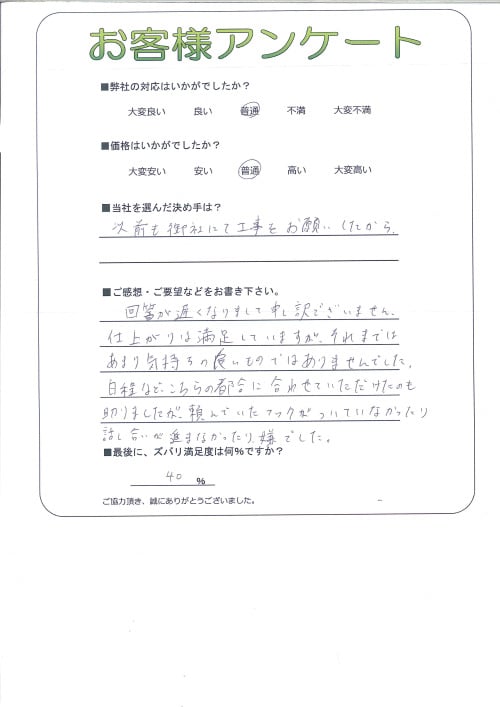 お客様アンケート
■弊社の対応はいかがでしたか?
大変良い 良い 普通 不満 大変不満
■価格はいかがでしたか?
大変安い 安い 普通 高い 大変高い
■当社を選んだ決め手は?
以前も御社にて工事をお願いしたから。
■ご感想・ご要望などをお書き下さい。
回答が遅くなりまして申し訳でございません。
仕上がりは満足していますが、それまでは
あまり気持ちの良いものではありませんでした。
日程など、こちらの都合に合わせていただけたのも
助りましたが、頼んでいたフックがついていなかったり
話し合いが進まなかったり、嫌でした。
■最後に、ズバリ満足度は何%ですか?
40 %
ご協力頂き、誠にありがとうございました。